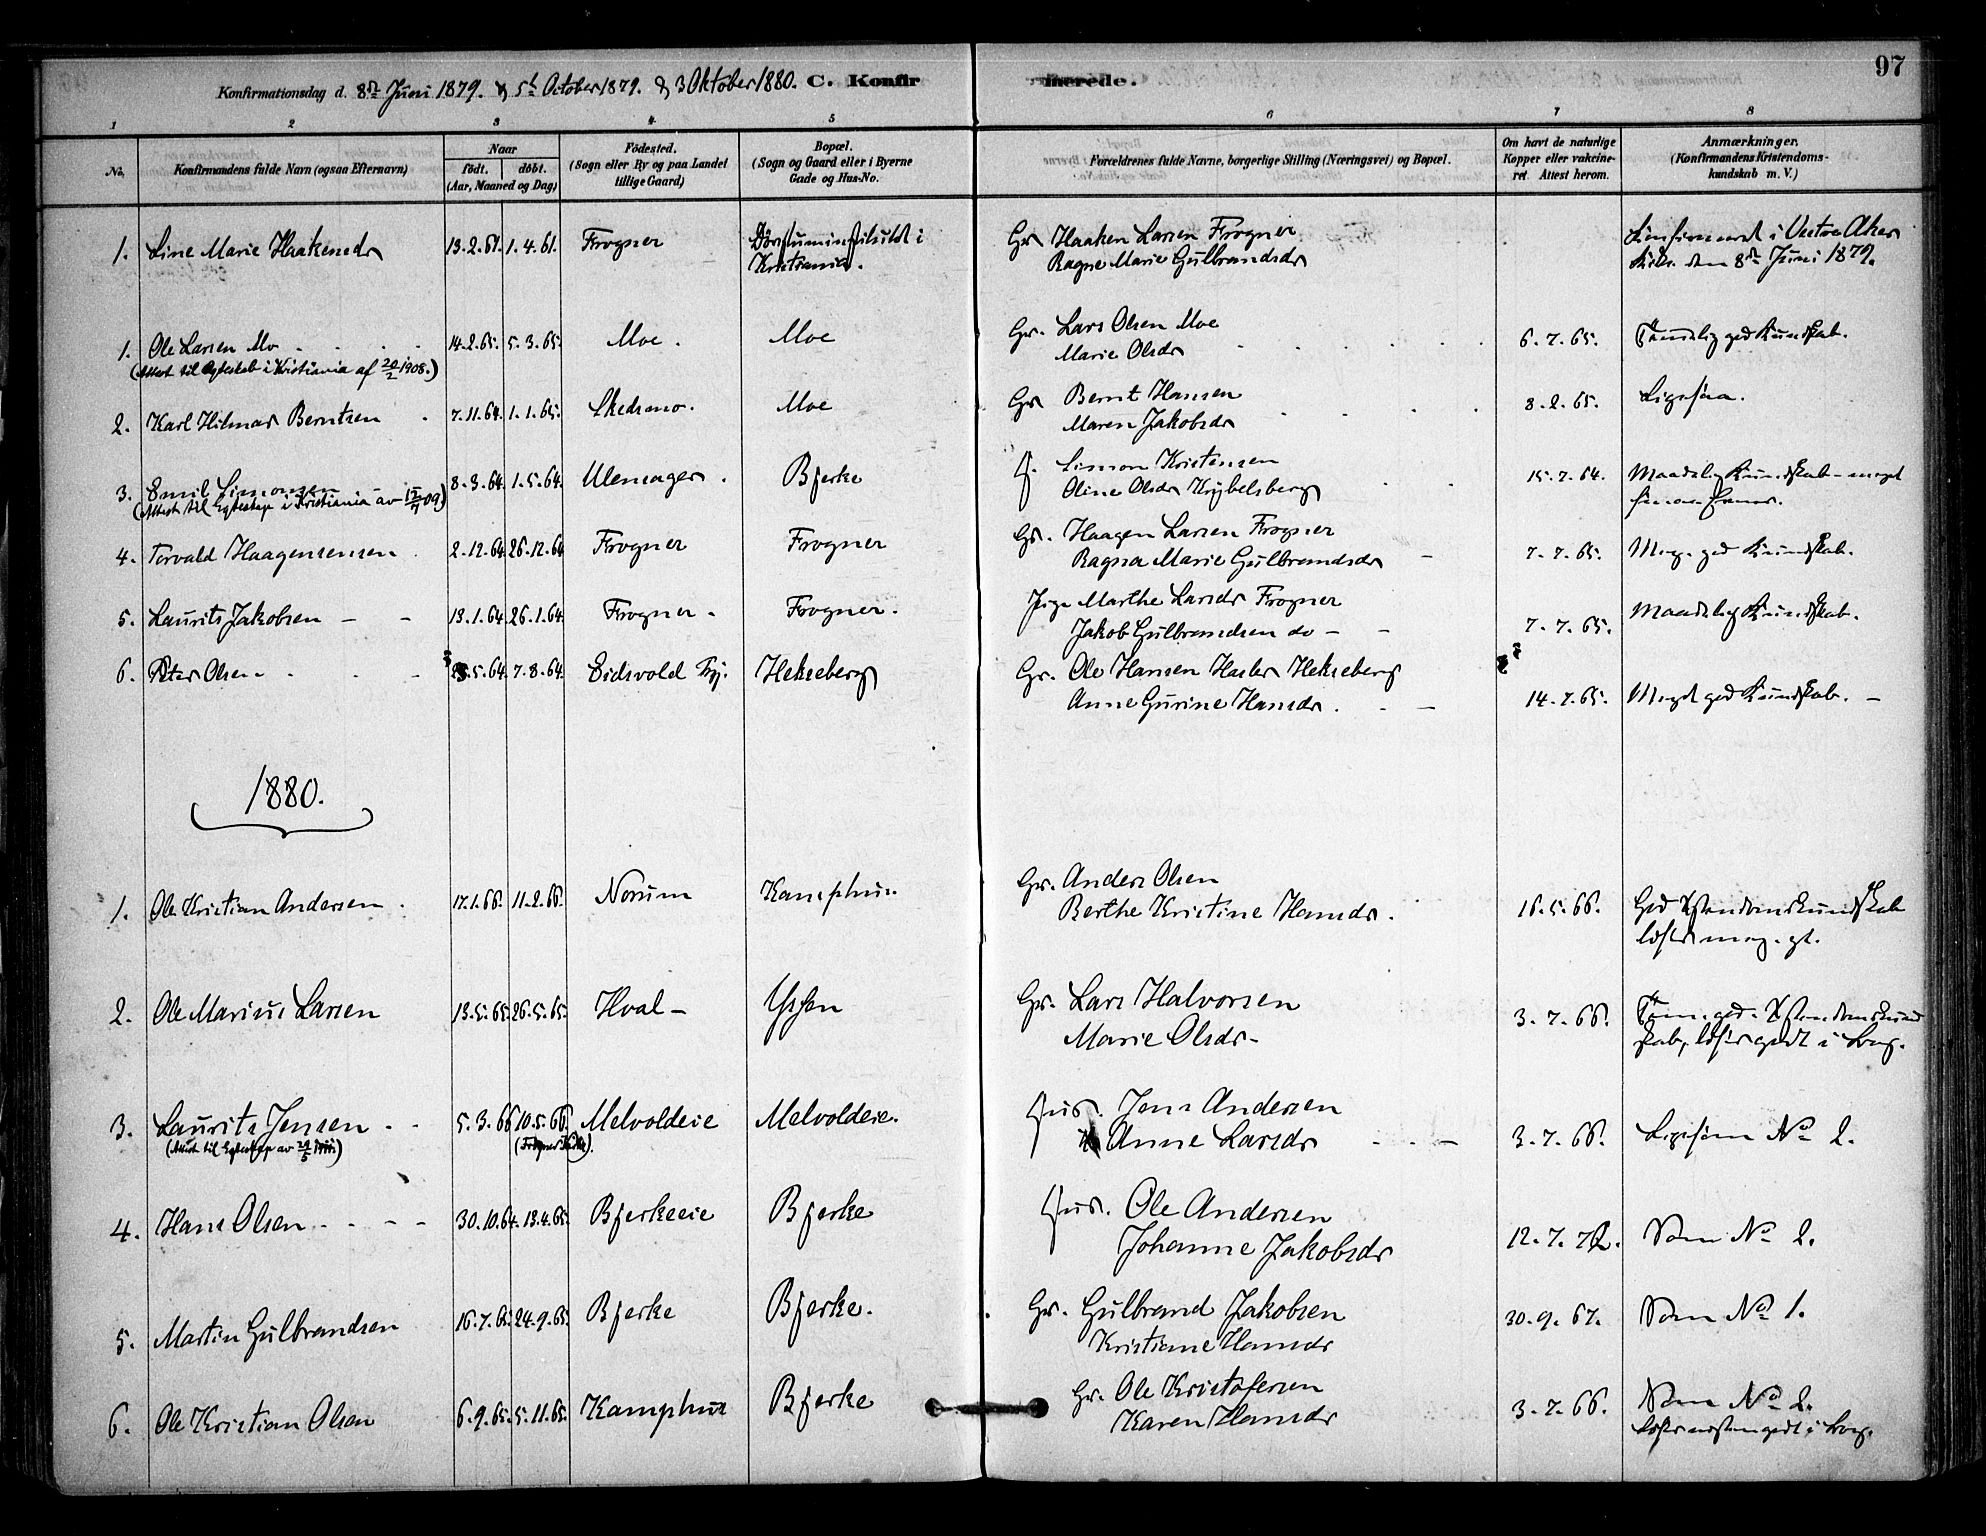 97
Konfirmationsdag d. 8de Juni 1879. & 5te October 1879. & 3 Oktober 1880. C. Konfirmerede.
1 2 3 4 5 6 7 8
No. Konfirmandens fulde Navn (ogsaa Efternavn) Naar födt. döbt. (Aar, Maaned og Dag) Födested. (Sogn eller By og paa Landet tillige Gaard) Bopæl. (Sogn og Gaard eller i Byerne Gade og Hus-No. Forældrenes fulde Navne, borgerlige Stilling (Næringsvei) og Bopæl. Om havt de naturlige Kopper eller vakcineret. Attest herom. Anmærkninger. (Konfirmandens Kristendomskundskab m. V.)
1. Line Marie Haakensdr 13.2.61. 1.4.61. Frogner Døvstuminstitutet i Kristiania. Gr Haaken Larsen Frogner Konfirmeret i Vestre Aker
Ragne Marie Gulbrandsdr Kirke den 8de Juni 1879.
1. Ole Larsen Mo 14.2.65. 5.3.65. Moe. Moe Gr. Lars Olsen Moe 6.7.65. Temmelig god Kundskab.
(Attest til Egteskab i Kristiania af 20/2 1908.) Marie Olsdr
2. Karl Hilmar Berntsen 7.11.64. 1.1.65. Skedsmo. Moe Gr Bernt Hansen 8.2.65. Ligesaa.
Maren Jakobsdr
3. Emil Simonsen 8.3.64. 1.5.64. Ulensager. Bjerke J. Simon Kristensen 15.7.64. Maadelig Kundskab - meget
(Attest til Egteskap i Kristiania av 09) Oline Olsdr Krybelsberg
4. Torvald Haagensensen 2.12.64 26.12.64 Frogner Frogner Gr. Haagen Larsen Frogner 7.7.65. Meg. god Kundskab.
Ragna Marie Gulbrandsdr
5. Laurits Jakobsen 13.1.64. 26.1.64. Frogner - Frogner. Pige Marthe Larsdr Frogner 7.7.65. Maadelig Kundskab.
Jakob Gulbrandsen do -
6. Peter Olsen 5.64. 7.8.64. Eidsvold Hekseberg Gr. Ole Hansen Hekseberg
Anne Gurine Hansdr. 14.7.65. Meget god Kundskab. -
1880.
1. Ole Kristian Andersen. 17.1.66. 11.2.66. Norum Kamphus. Gr. Anders Olsen
Berthe Kristine Hansdr. 16.5.66. God Xstendomskundskab
læser meg. gt.
2. Ole Marius Larsen 13.5.65. 26.5.65. Hval - Gr. Lars Halvorsen 3.7.66. Tem. god Xstendomskund
Marie Olsdr - skab, læser godt i Bog.
3. Laurits Jensen 5.3.66 10.5.66. Melvoldeie Melvoldeie. Hus. Jens Andersen
(Attest til Egteskap av 29/5 ) (Frogner Kirke). Anne Larsdr 3.7.66. Ligesom No 2.
4. Hans Olsen 30.10.64. 13.4.65. Bjerkeeie Bjerke Hus. Ole Andersen
Johanne Jakobsdr 12.7.72. Som No 2.
5. Martin Gulbrandsen 16.7.65. 24.9.65. Bjerke Bjerke. Gr. Gulbrand Jakobsen 30.9.67. Som No 1.
Kristiane Hansdr
6. Ole Kristian Olsen 6.9.65. 5.11.65. Kamphus Bjerke Gr. Ole Kristofersen 3.7.66. Som No 2.
Karen Hansdr Læser næsten godt i Bog.